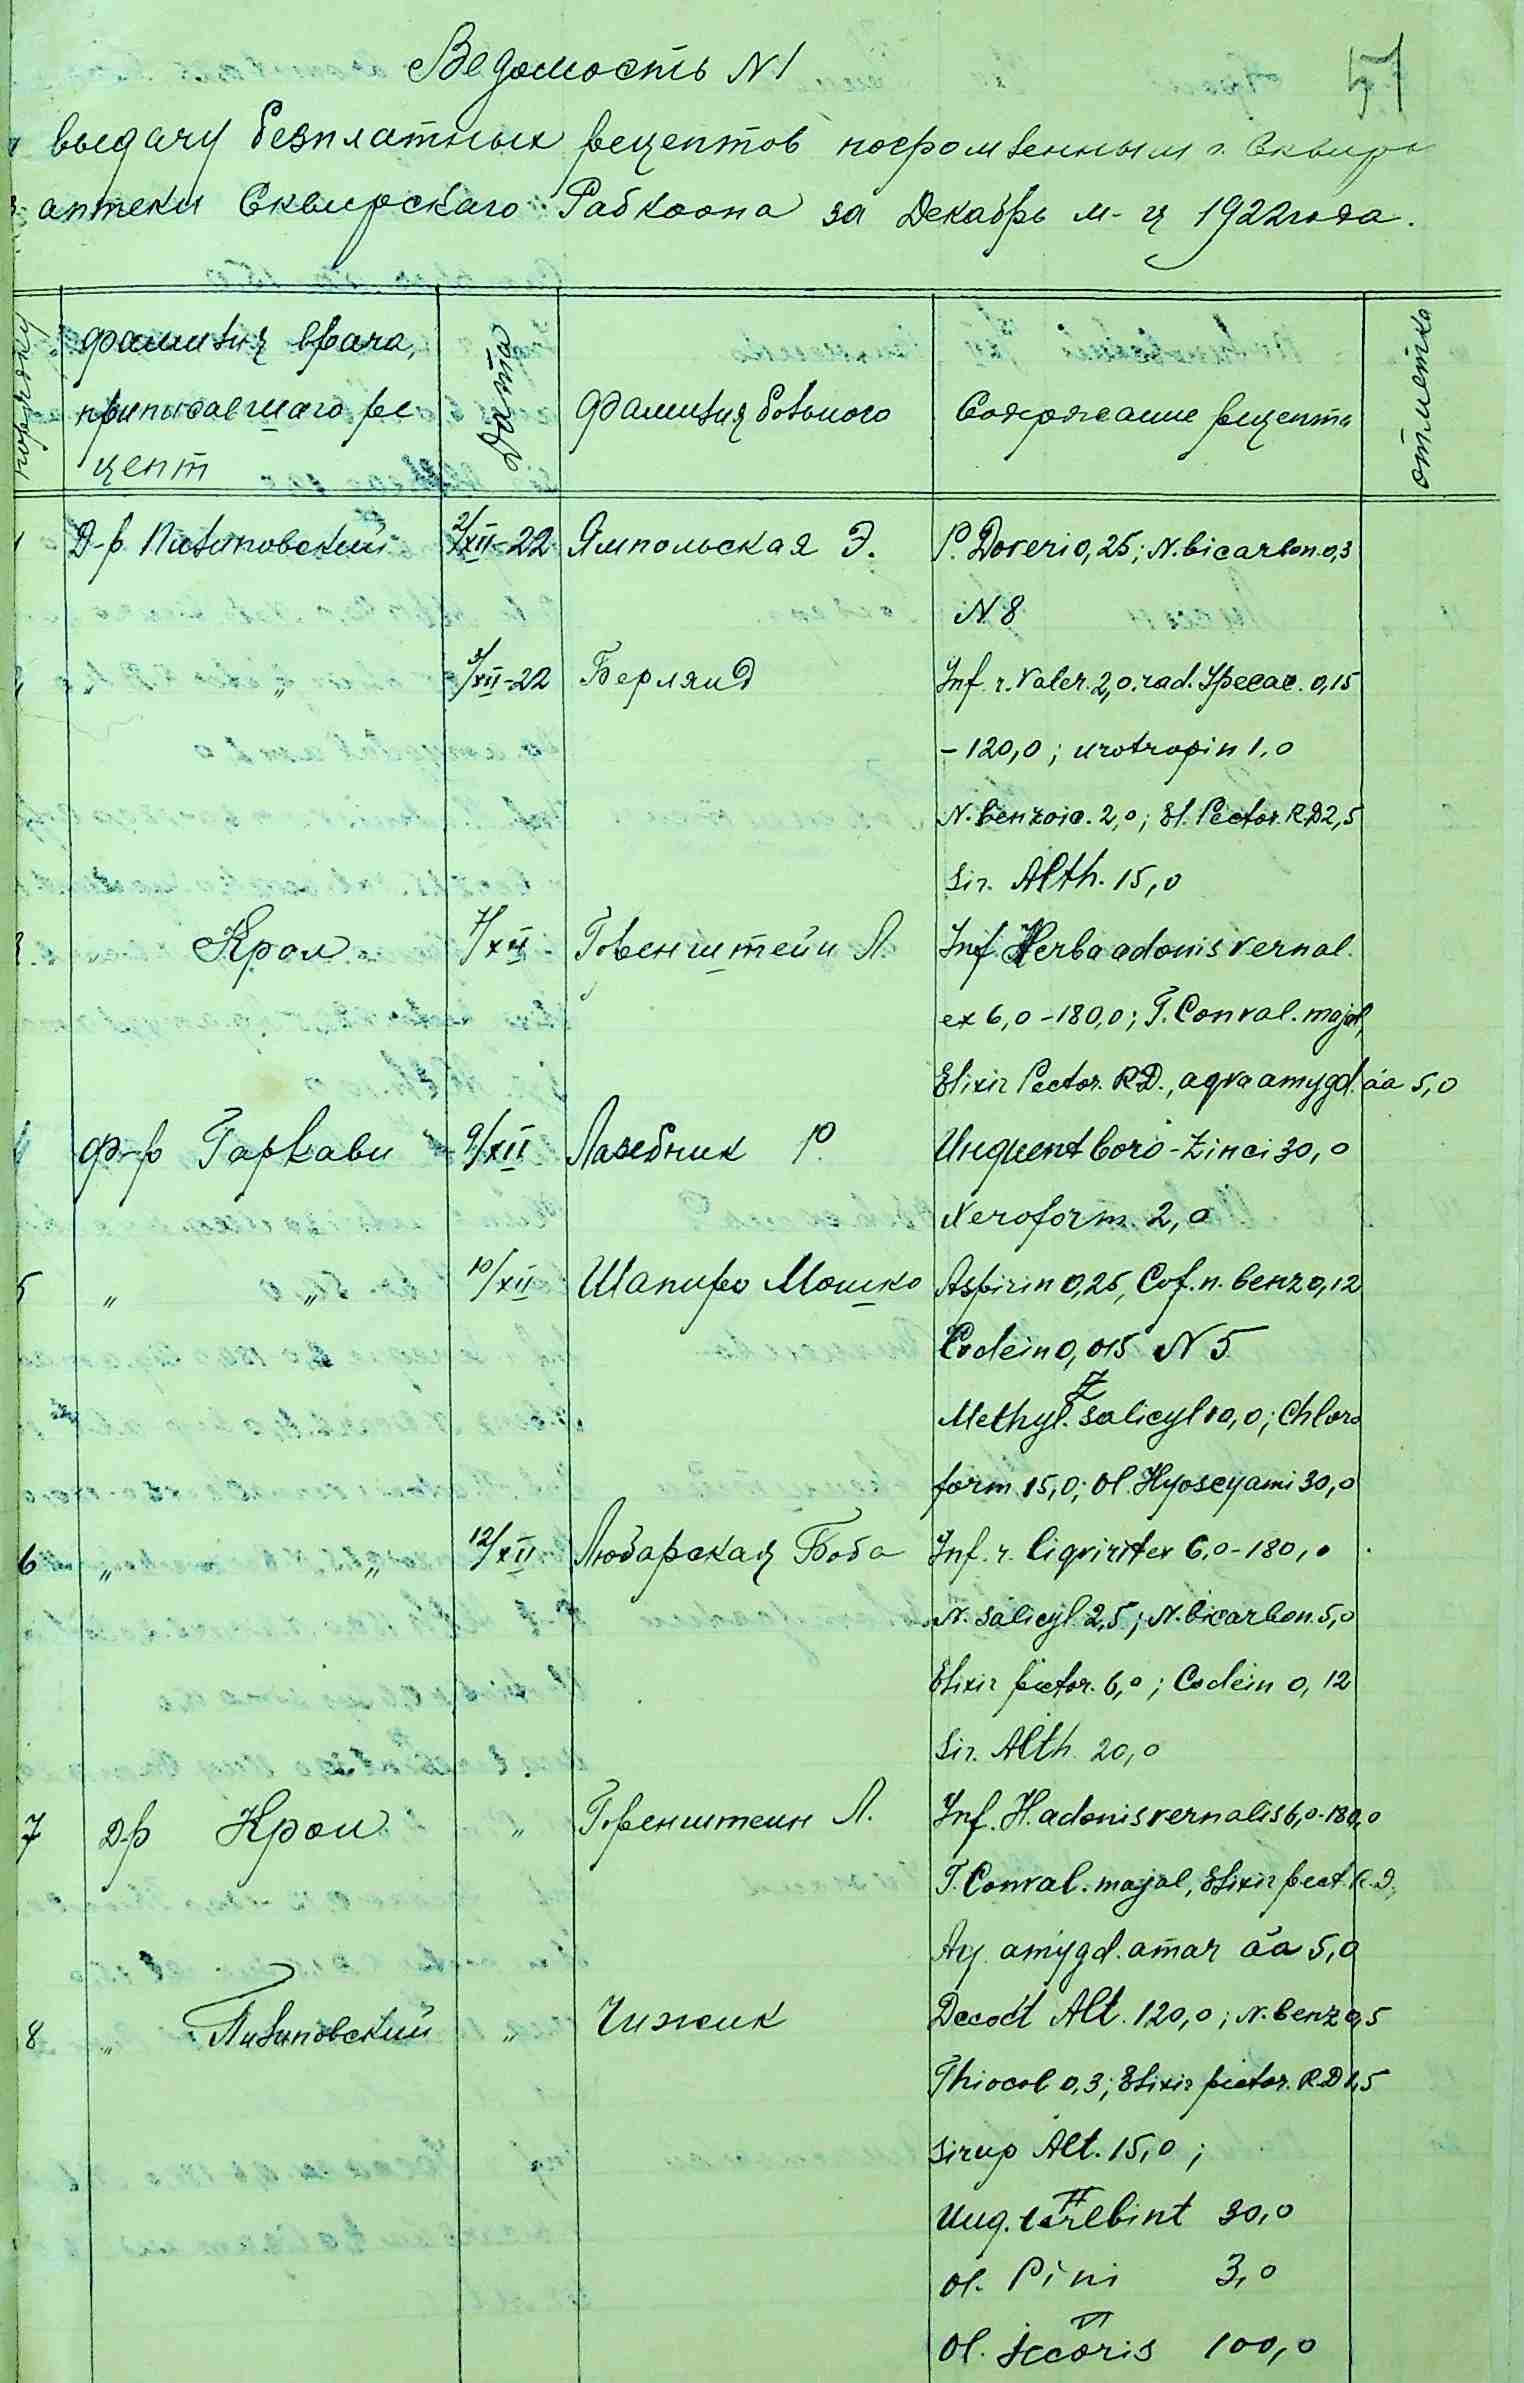 Ведомость N 1
51
выдачу безплатных рецептов погромленным г. Сквиры
аптеки Сквирскаго Рабкоопа за Декабрь м-ц 1922 года.
порядку
фамилия врача,
прописавшаго ре
цепт
Дата
фамилия больного
Содержание рецепта
отметка
1 Д-р Пилиповский 2/XII-22 Ямпольская Э. P. Doveri 0,25; N. bicarbon. 0,3
N. 8
" 3/XII-22 Берлянд Inf. r. Valer. 2,0. rad. Ipecac. 0,15
- 120,0; urotropin 1,0
N. benzoic. 2,0; El. Pector. R.D 2,5
Sir. Alth. 15,0
Крол 7/XII Говенштейн Л. Inf. Herba adonis vernal.
ex 6,0-180,0; T. Conval. majal,
Elixir Pector. R.D., aqva amygd. aa 5,0
Ф-р Гаркави 9/XII Лазебник Р. Unguent boro-Zinci 30,0
Xeroform. 2,0
5 " " 10/XII Шапиро Мошко Aspirin 0,25, Cof. n. benz 0,12
Codein 0,015 N 5
Methyl. salicyl 10,0; Chloro
form 15,0; Ol. Hyoscyami 30,0
6 " " 12/XII Любарская Боба Inf. r. liqvirit ex 6,0-180,0
N. salicyl. 2,5; N. bicarbon. 5,0
Elixir pector. 6,0; Codein 0,12
Sir. Alth. 20,0
7 Д-р Крол " Говенштейн Л. Inf. H. adonis vernalis 6,0-180,0
T. Conval. majal, Elixir pect. R.D,
Aq. amygd. amar aa 5,0
8 " Пилиповский " Чижик Decoct Alt. 120,0; N. benz 0,5
Thiocol 0,3; Elixir pector. R.D 1,5
Sirup Alt. 15,0;
Ung. terebint 30,0
Ol. Pini 3,0
VI
Ol. Jecoris 100,0